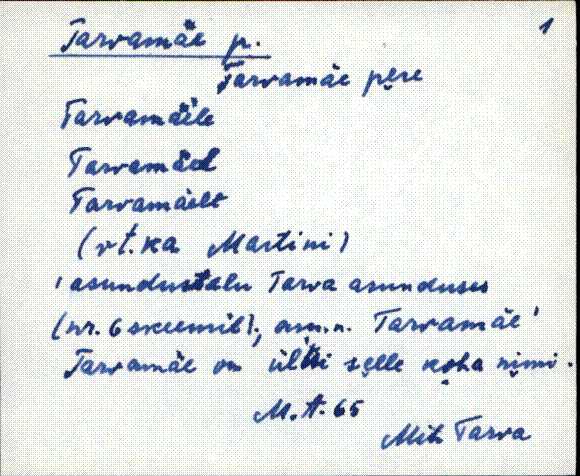 1
Tarvamäe p.
Tarvamäe pere
Tarvamäele
Tarvamäel
Tarvamäelt
(vt. ka Martini)
'asundustalu Tarva asunduses
(nr. 6 skeemil), am.n. Tarvamäe'
Tarvamäe on üldsi selle koha nimi.
M.A. 65
Mih. Tarva